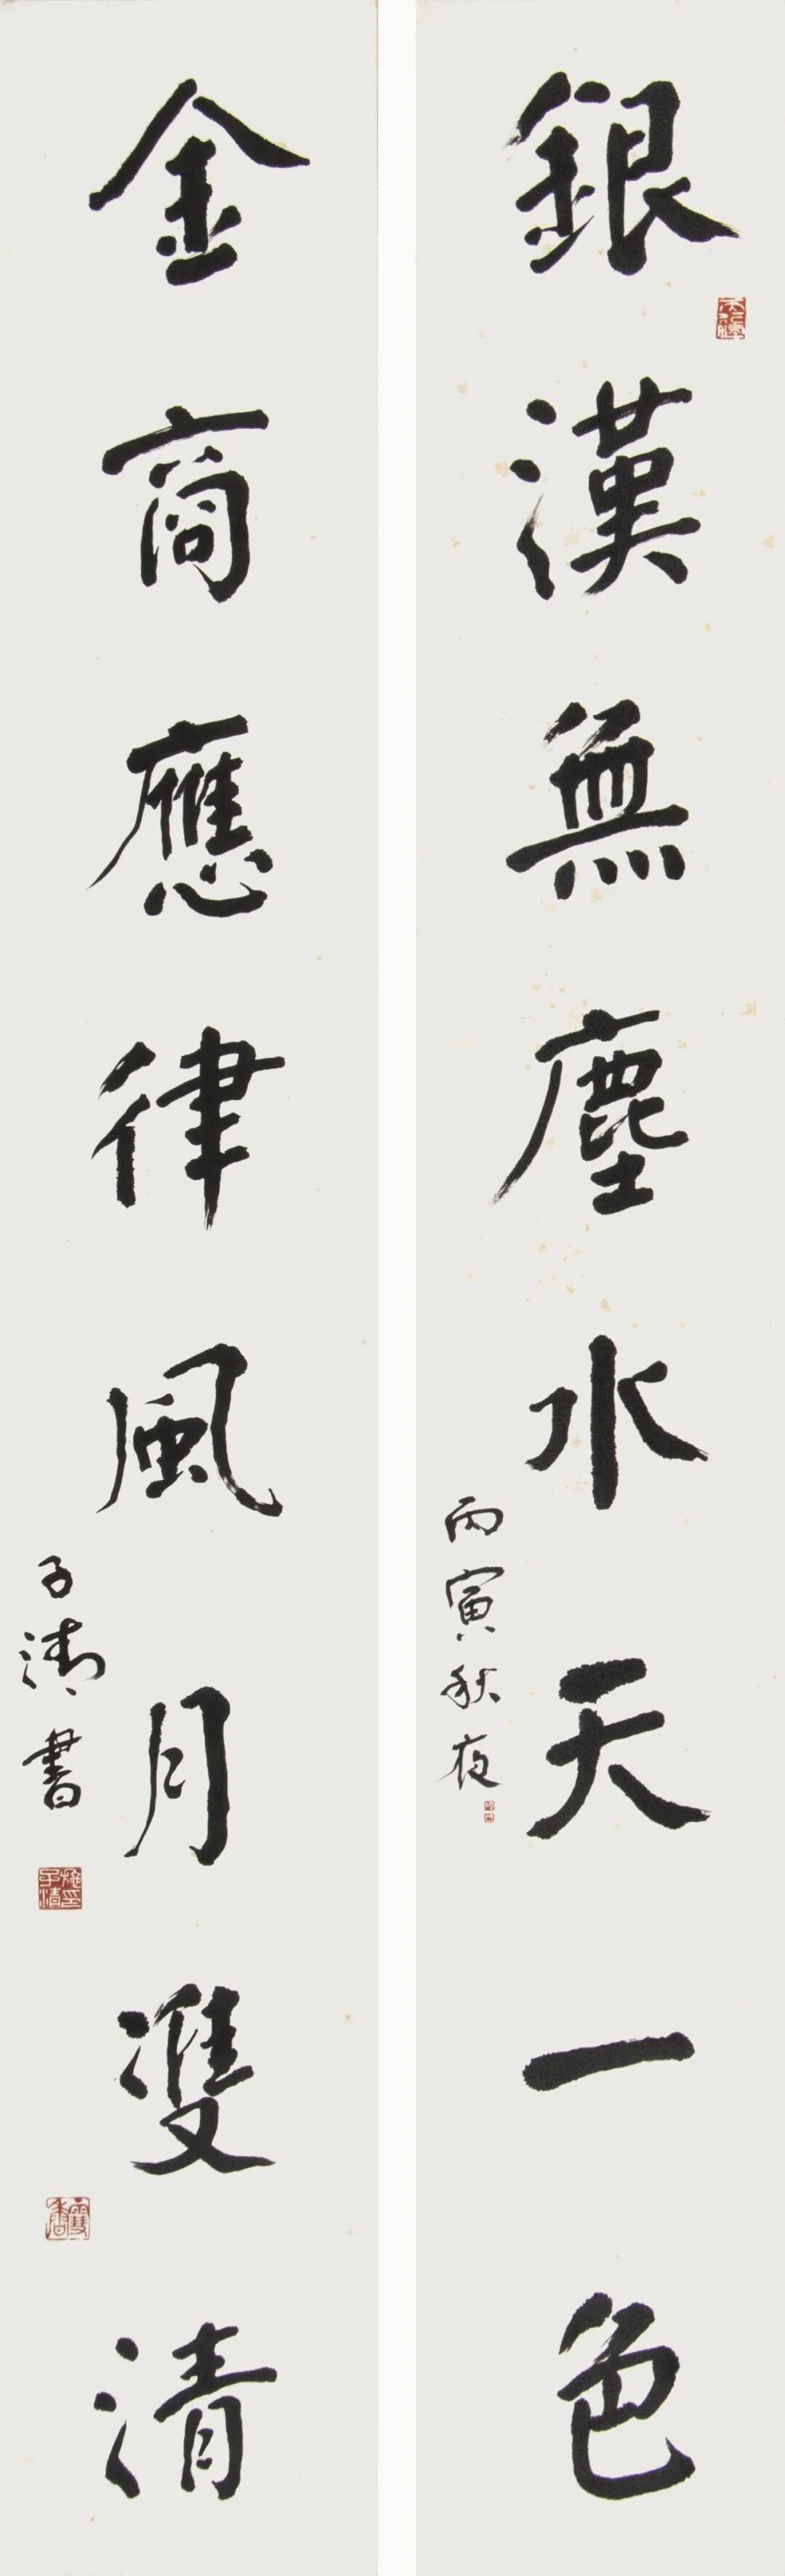 銀漢無塵水天一色
丙寅秋夜
金商應律風月雙清
子清書